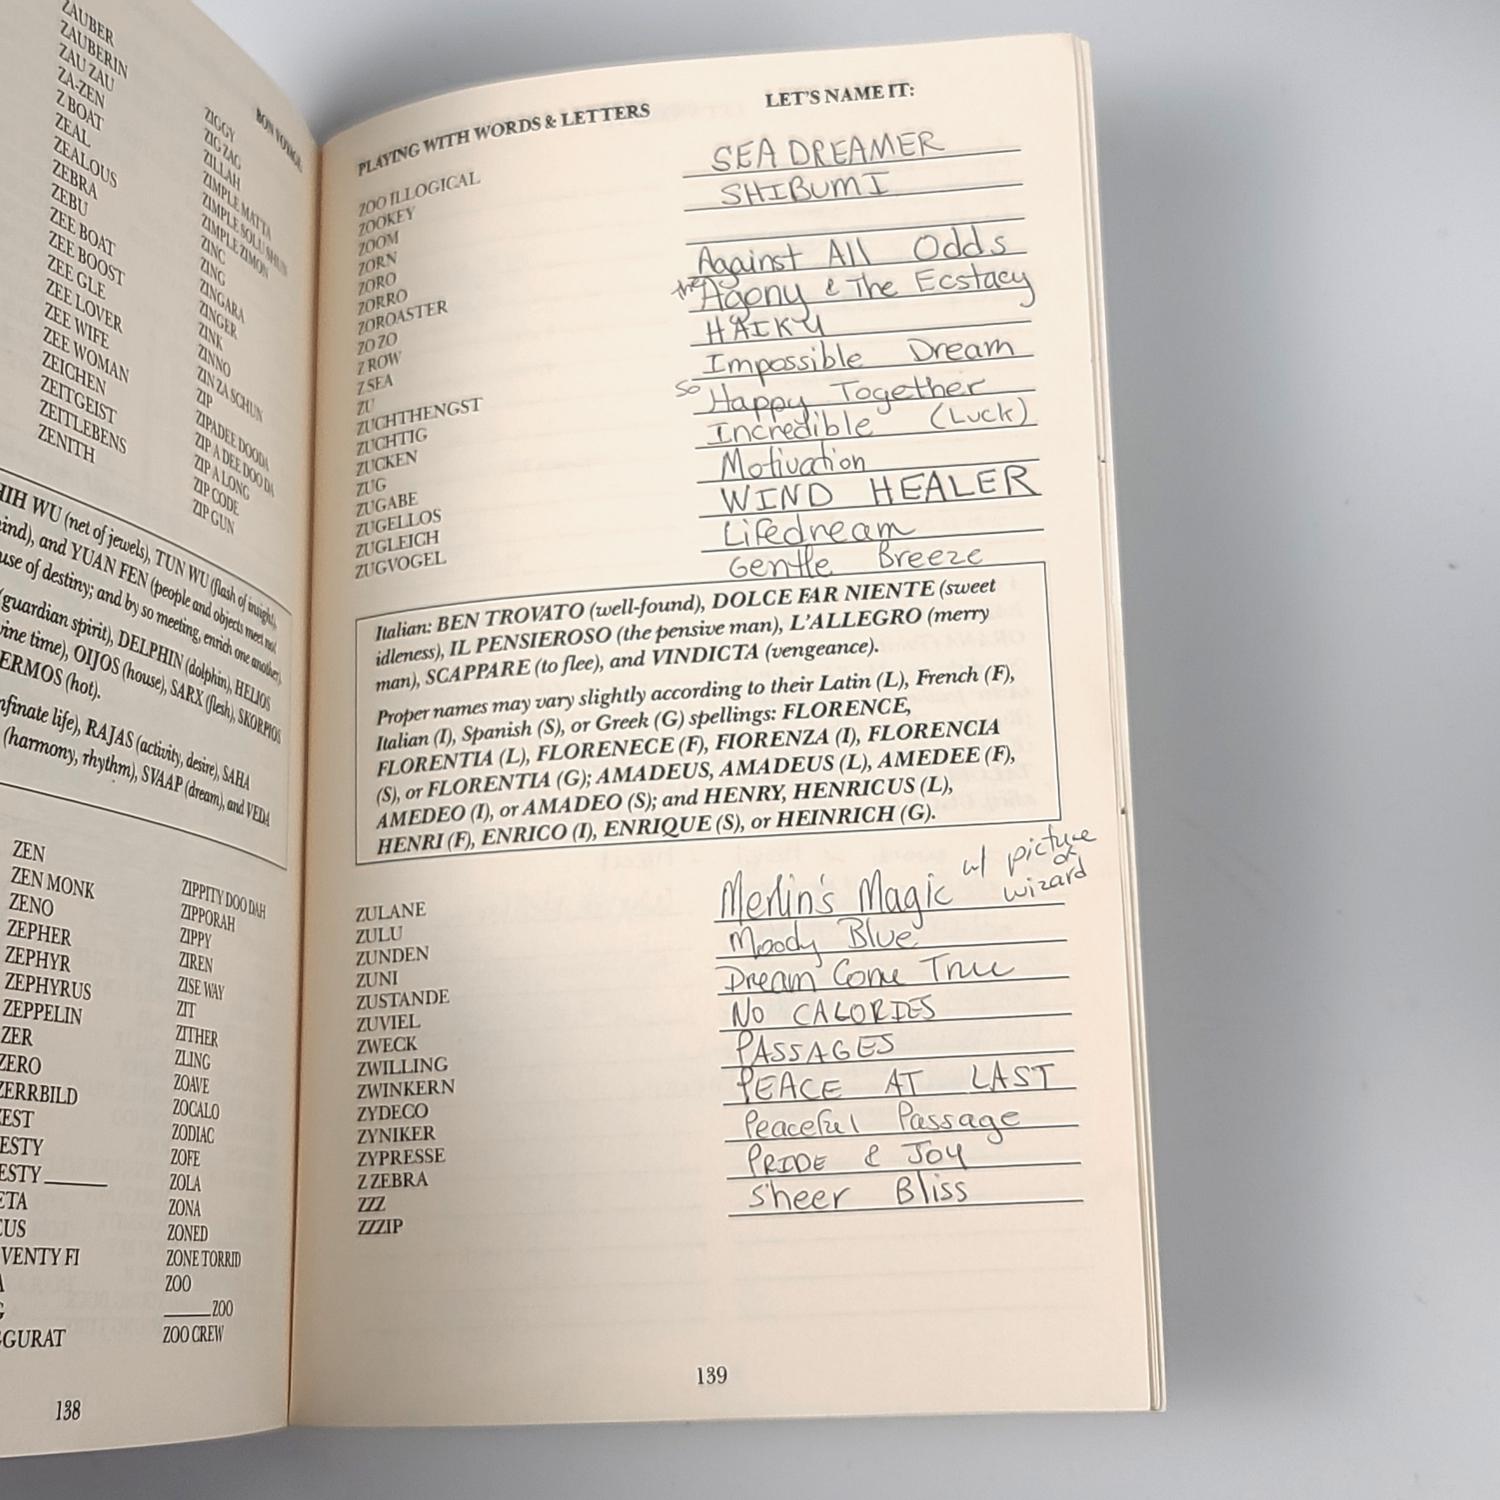 ZAUBER
ZAUBERIN
ZAU ZAU
ZA-ZEN
Z BOAT
ZEAL
ZEALOUS
ZEBRA
ZEBU
ZEE BOAT
ZEE BOOST
ZEE GLE
ZEE LOVER
ZEE WIFE
ZEE WOMAN
ZEICHEN
ZEITGEIST
ZEITLEBENS
ZENITH
BON VOYAGE
ZIGGY
ZIG ZAG
ZILLAH
ZIMPLE MATTA
ZIMPLE SOLU SHUN
ZIMPLE ZIMON
ZINC
ZING
ZINGARA
ZINGER
ZINK
ZINNO
ZIN ZA SCHUN
ZIP
ZIPADEE DOODA
ZIP A DEE DOO DA
ZIP A LONG
ZIP CODE
ZIP GUN
HIH WU (net of jewels), TUN WU (flash of insight,
ind), and YUAN FEN (people and objects meet not
use of destiny; and by so meeting, enrich one another).
(guardian spirit), DELPHIN (dolphin), HELIOS
vine time), OIJOS (house), SARX (flesh), SKORPIOS
ERMOS (hot).
nfinate life), RAJAS (activity, desire), SAHA
(harmony, rhythm), SVAAP (dream), and VEDA
ZEN
ZEN MONK
ZENO
ZEPHER
ZEPHYR
ZEPHYRUS
ZEPPELIN
ZER
ZERO
ZERRBILD
EST
ESTY
ESTY______
ETA
CUS
VENTY FI
A
G
GGURAT
ZIPPITY DOO DAH
ZIPPORAH
ZIPPY
ZIREN
ZISE WAY
ZIT
ZITHER
ZLING
ZOAVE
ZOCALO
ZODIAC
ZOFE
ZOLA
ZONA
ZONED
ZONE TORRID
ZOO
______ZOO
ZOO CREW
138
PLAYING WITH WORDS & LETTERS
ZOO ILLOGICAL
ZOOKEY
ZOOM
ZORN
ZORO
ZORRO
ZOROASTER
ZO ZO
Z ROW
Z SEA
ZU
ZUCHTHENGST
ZUCHTIG
ZUCKEN
ZUG
ZUGABE
ZUGELLOS
ZUGLEICH
ZUGVOGEL
LET'S NAME IT:
SEA DREAMER
SHIBUMI
Against All Odds
the Agony & The Ecstacy
HAIKU
Impossible Dream
so Happy Together
Incredible (Luck)
Motivation
WIND HEALER
Lifedream
Gentle Breeze
Italian: BEN TROVATO (well-found), DOLCE FAR NIENTE (sweet
idleness), IL PENSIEROSO (the pensive man), L'ALLEGRO (merry
man), SCAPPARE (to flee), and VINDICTA (vengeance).
Proper names may vary slightly according to their Latin (L), French (F),
Italian (I), Spanish (S), or Greek (G) spellings: FLORENCE,
FLORENTIA (L), FLORENECE (F), FIORENZA (I), FLORENCIA
(S), or FLORENTIA (G); AMADEUS, AMADEUS (L), AMEDEE (F),
AMEDEO (I), or AMADEO (S); and HENRY, HENRICUS (L),
HENRI (F), ENRICO (I), ENRIQUE (S), or HEINRICH (G).
ZULANE
ZULU
ZUNDEN
ZUNI
ZUSTANDE
ZUVIEL
ZWECK
ZWILLING
ZWINKERN
ZYDECO
ZYNIKER
ZYPRESSE
Z ZEBRA
ZZZ
ZZZIP
Merlin's Magic w/ picture of wizard
Moody Blue
Dream Come True
NO CALORIES
PASSAGES
PEACE AT LAST
Peaceful Passage
PRIDE & JOY
Sheer Bliss
139